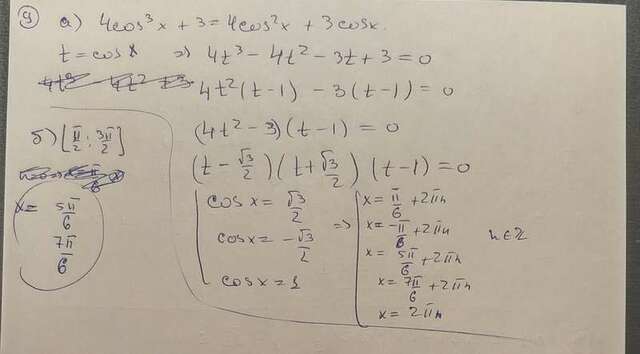 9 а) 4cos³x + 3 = 4cos²x + 3cosx.
t = cosx ⇒ 4t³ - 4t² - 3t + 3 = 0
4t²(t-1) - 3(t-1) = 0
(4t² - 3)(t-1) = 0
(t - √3/2)(t + √3/2)(t-1) = 0
cos x = √3/2
cosx = -√3/2
cosx = 1
⇒
x = π/6 + 2πn
x = -π/6 + 2πn
x = 5π/6 + 2πn
x = 7π/6 + 2πn
x = 2πn
n∈ℤ
б) [π/2 ; 3π/2]
x = 5π/6
7π/6